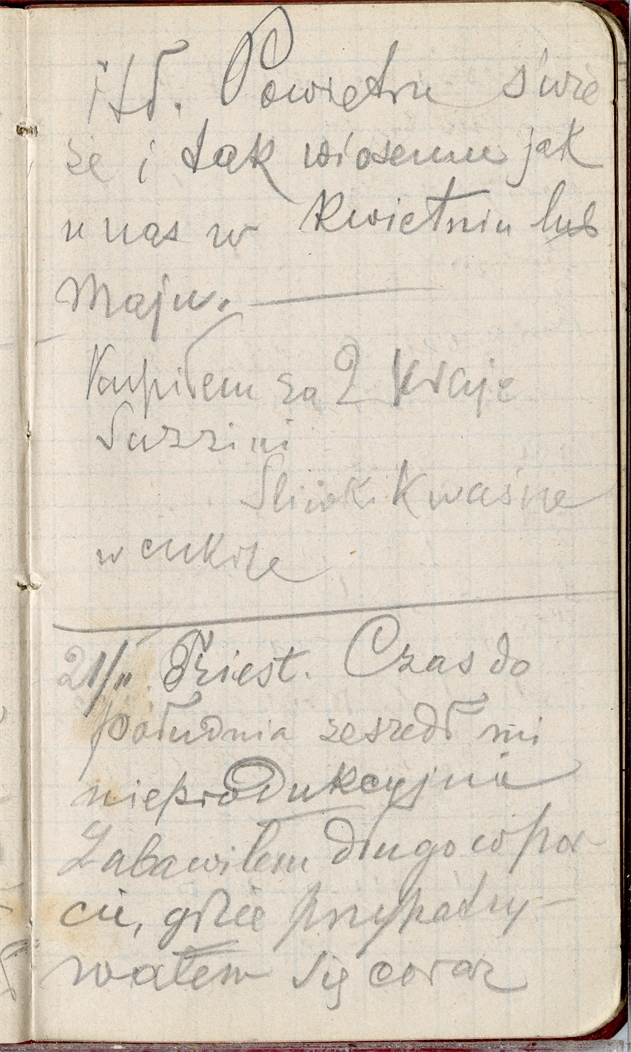 itd. Powietrze świe
że i tak wiosenne jak
u nas w Kwietniu lub
Maju. —
Kupiłem za 2 Kraje
Suszini
Śliwki Kwaśne
w cukrze
21/II Triest. Czas do
południa zeszedł mi
nieprodukcyjnie
Zabawiłem długo w por-
cie, gdzie przypatry-
wałem się coraz